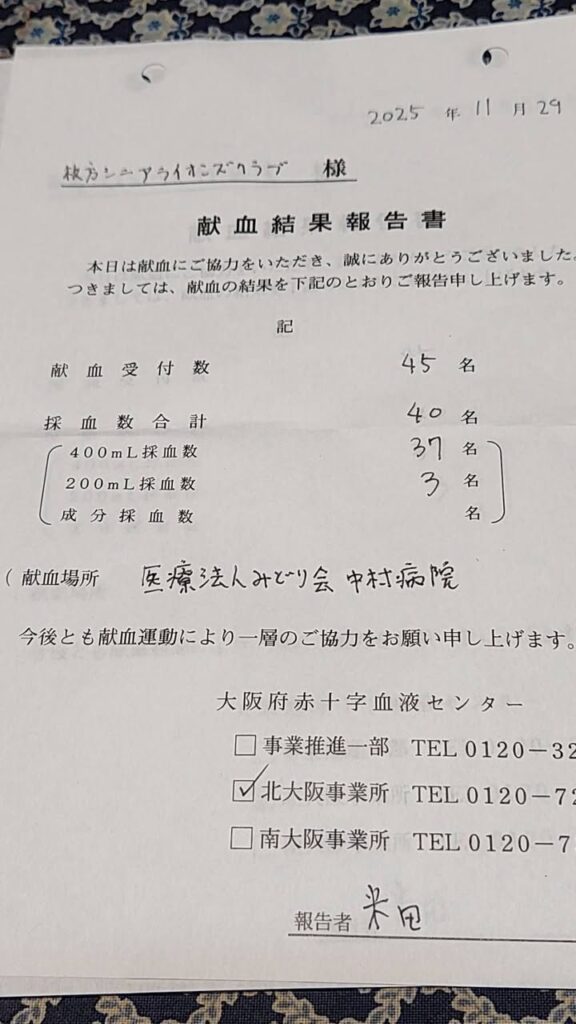 2025 年 11 月 29
枚方シニアライオンズクラブ 様
献血結果報告書
本日は献血にご協力をいただき、誠にありがとうございました。
つきましては、献血の結果を下記のとおりご報告申し上げます。
記
献血受付数 45 名
採血数合計 40 名
400mL採血数 37 名
200mL採血数 3 名
成分採血数 名
( 献血場所 医療法人みどり会 中村病院
今後とも献血運動により一層のご協力をお願い申し上げます。
大阪府赤十字血液センター
□事業推進一部 TEL 0120-32
☑北大阪事業所 TEL 0120-72
□南大阪事業所 TEL 0120-7
報告者 米田